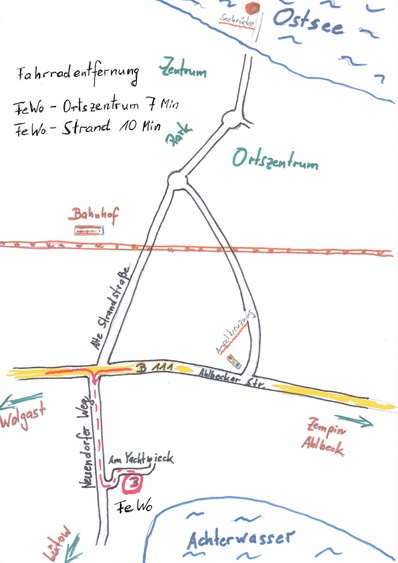 Seebrücke
Ostsee
Fahrradentfernung
Zentrum
FeWo - Ortszentrum 7 Min
FeWo - Strand 10 Min
Park
Ortszentrum
Bahnhof
Alte Strandstraße
Ampelkreuzung
B 111
Ahlbecker Str.
Wolgast
Neuendorfer Weg
Zempin
Ahlbeck
Am Yachtwieck
3
FeWo
Achterwasser
Lütow